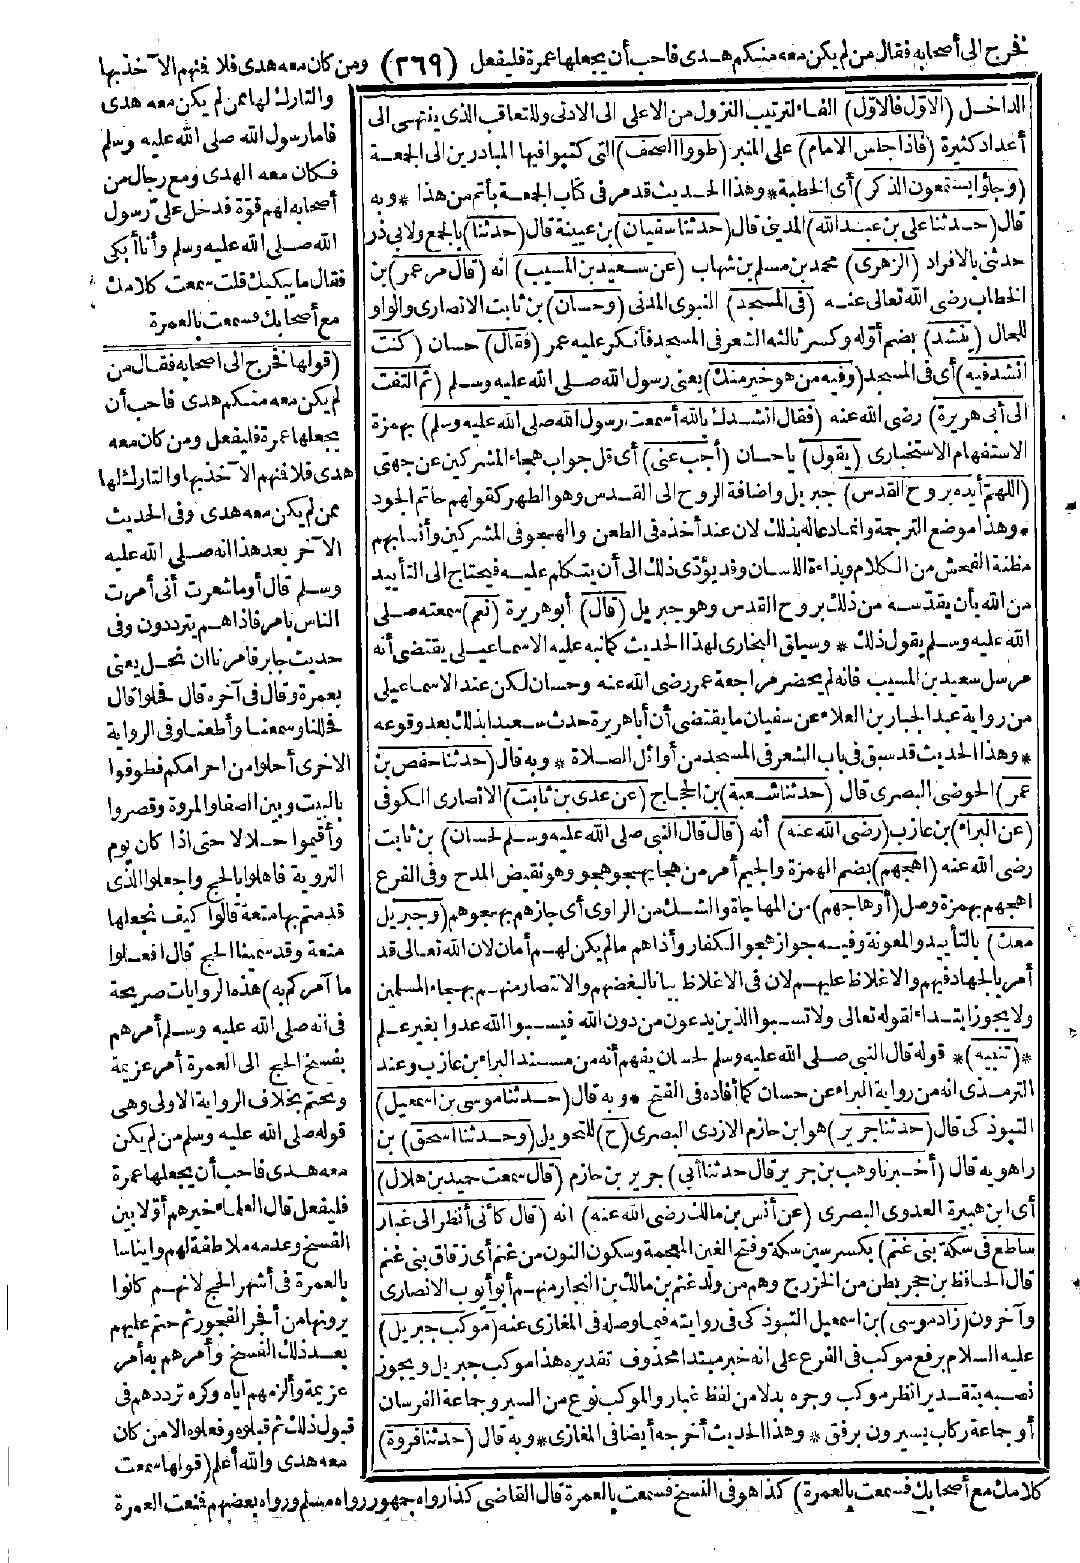 فخرج الى أصحابه فقال من لم يكن معه منكم هدى فاحب أن يجعلها عمرة فليفعل (٢٦٩) ومن كان معه هدى فلا فمنهم الآخذ بها
الداخل (الاوّل فالاوّل) الفاء لترتيب النزول من الاعلى الى الادنى وللتعاقب الذى ينتهى الى
أعداد كثيرة (فاذا جلس الامام) على المنبر (طووا الصحف) التى كتبوا فيها المبادرين الى الجمعة
(وجاؤا يستمعون الذكر) أى الخطبة * وهذا الحديث قد مر فى كتاب الجمعة بأتم من هذا * وبه
قال (حدثنا على بن عبد الله) المدينى قال (حدثنا سفيان) بن عيينة قال (حدثنا) بالجمع ولابى ذر
حدثنى بالافراد (الزهرى) محمد بن مسلم بن شهاب (عن سعيد بن المسيب) انه (قال مر عمر) بن
الخطاب رضى الله تعالى عنه (فى المسجد) النبوى المدنى (وحسان) بن ثابت الانصارى والواو
للحال (ينشد) بضم أوله وكسر ثالثه الشعر فى المسجد فأنكر عليه عمر (فقال) حسان (كنت
أنشد فيه) أى فى المسجد (وفيه من هو خير منك) يعنى رسول الله صلى الله عليه وسلم (ثم التفت
الى أبى هريرة) رضى الله عنه (فقال أنشدك بالله أسمعت رسول الله صلى الله عليه وسلم) بهمزة
الاستفهام الاستخبارى (يقول) ياحسان (أجب عنى) أى قل جواب هجاء المشركين عن جهتى
(اللهم أيده بروح القدس) جبريل واضافة الروح الى القدس وهو الطهر كقولهم حاتم الجود
* وهذا موضع الترجمة وانما دعا له بذلك لان عند أخذه فى الطعن والهجو فى المشركين وأنسابهم
مظنة الفحش من الكلام وبذاءة اللسان وقد يؤدّى ذلك الى أن يتكلم عليه فيحتاج الى التأييد
من الله بأن يقدّسه من ذلك بروح القدس وهو جبريل (قال) أبو هريرة (نعم) سمعته صلى
الله عليه وسلم يقول ذلك * وسياق البخارى لهذا الحديث كما نبه عليه الاسماعيلى يقتضى أنه
مرسل سعيد بن المسيب فانه لم يحضر مراجعة عمر رضى الله عنه وحسان لكن عند الاسماعيلى
من رواية عبد الجبار بن العلاء عن سفيان ما يقتضى أن أبا هريرة حدث سعيدا بذلك بعد وقوعه
* وهذا الحديث قد سبق فى باب الشعر فى المسجد من أوائل الصلاة * وبه قال (حدثنا حفص بن
عمر) الحوضى البصرى قال (حدثنا شعبة) بن الحجاج (عن عدى بن ثابت) الانصارى الكوفى
(عن البراء) بن عازب (رضى الله عنه) أنه (قال قال النبى صلى الله عليه وسلم لحسان) بن ثابت
رضى الله عنه (اهجهم) بضم الهمزة والجيم أمر من هجا يهجو هجو وهو نقيض المدح وفى الفرع
اهجهم بهمزة وصل (أو هاجهم) من المهاجاة والشك من الراوى أى جازهم بهجوهم (وجبريل
معك) بالتأييد والمعونة وفيه جواز هجو الكفار وأذاهم مالم يكن لهم أمان لان الله تعالى قد
أمر بالجهاد فيهم والاغلاظ عليهم لان فى الاغلاظ بيانا لبغضهم والانتصار منهم بهجاء المسلمين
ولا يجوز ابتداء لقوله تعالى ولا تسبوا الذين يدعون من دون الله فيسبوا الله عدوا بغير علم
*(تنبيه)* قوله قال النبى صلى الله عليه وسلم لحسان يفهم أنه من مسند البراء بن عازب وعند
الترمذى انه من رواية البراء عن حسان كما أفاده فى الفتح * وبه قال (حدثنا موسى بن اسمعيل)
التبوذكى قال (حدثنا جرير) هو ابن حازم الازدى البصرى (ح) للتحويل (وحدثنا اسحق) بن
راهويه قال (أخبرنا وهب بن جرير قال حدثنا أبى) جرير بن حازم (قال سمعت حميد بن هلال)
أى ابن هبيرة العدوى البصرى (عن أنس بن مالك رضى الله عنه) انه (قال كأنى أنظر الى غبار
ساطع فى سكة بنى غنم) بكسر سين سكة وفتح الغين المعجمة وسكون النون من غنم أى زقاق بنى غنم
قال الحافظ بن حجر بطن من الخزرج وهم من ولد غنم بن مالك بن النجار منهم أبو أيوب الانصارى
وآخرون (زاد موسى) بن اسمعيل التبوذكى فى روايته فيما وصله فى المغازى عنه (موكب جبريل)
عليه السلام برفع موكب فى الفرع على انه خبر مبتدا محذوف تقديره هذا موكب جبريل ويجوز
نصبه بتقدير انظر موكب وجره بدلا من لفظ غبار والموكب نوع من السير وجماعة الفرسان
أو جماعة ركاب يسيرون برفق * وهذا الحديث أخرجه أيضا فى المغازى * وبه قال (حدثنا فروة)
والتارك لها ممن لم يكن معه هدى
فاما رسول الله صلى الله عليه وسلم
فكان معه الهدى ومع رجال من
أصحابه لهم قوّة فدخل علىّ رسول
الله صلى الله عليه وسلم وأنا أبكى
فقال ما يبكيك قلت سمعت كلامك
مع أصحابك فسمعت بالعمرة
(قولها فخرج الى أصحابه فقال من
لم يكن معه منكم هدى فاحب أن
يجعلها عمرة فليفعل ومن كان معه
هدى فلا فمنهم الآخذ بها والتارك لها
ممن لم يكن معه هدى وفى الحديث
الآخر بعد هذا انه صلى الله عليه
وسلم قال أوما شعرت أنى أمرت
الناس بامر فاذا هم يترددون وفى
حديث جابر فامرنا ان نحل يعنى
بعمرة وقال فى آخره قال فحلوا قال
فحللنا وسمعنا وأطعنا وفى الرواية
الاخرى أحلوا من احرامكم فطوفوا
بالبيت وبين الصفا والمروة وقصروا
وأقيموا حلالا حتى اذا كان يوم
التروية فاهلوا بالحج واجعلوا الذى
قدمتم بها متعة قالوا كيف نجعلها
متعة وقد سمينا الحج قال افعلوا
ما آمركم به) هذه الروايات صريحة
فى انه صلى الله عليه وسلم أمرهم
بفسخ الحج الى العمرة أمر عزيمة
وتحتم بخلاف الرواية الاولى وهى
قوله صلى الله عليه وسلم من لم يكن
معه هدى فاحب أن يجعلها عمرة
فليفعل قال العلماء خيرهم أوّلا بين
الفسخ وعدمه ملاطفة لهم وايناسا
بالعمرة فى أشهر الحج لانهم كانوا
يرونها من أفجر الفجور ثم حتم عليهم
بعد ذلك الفسخ وأمرهم به أمر
عزيمة وألزمهم اياه وكره ترددهم فى
قبول ذلك ثم قبلوه وفعلوه الامن كان
معه هدى والله أعلم (قولها سمعت
كلامك مع أصحابك فسمعت بالعمرة) كذا هو فى النسخ فسمعت بالعمرة قال القاضى كذا رواه جمهور رواه مسلم ورواه بعضهم فمنعت العمرة